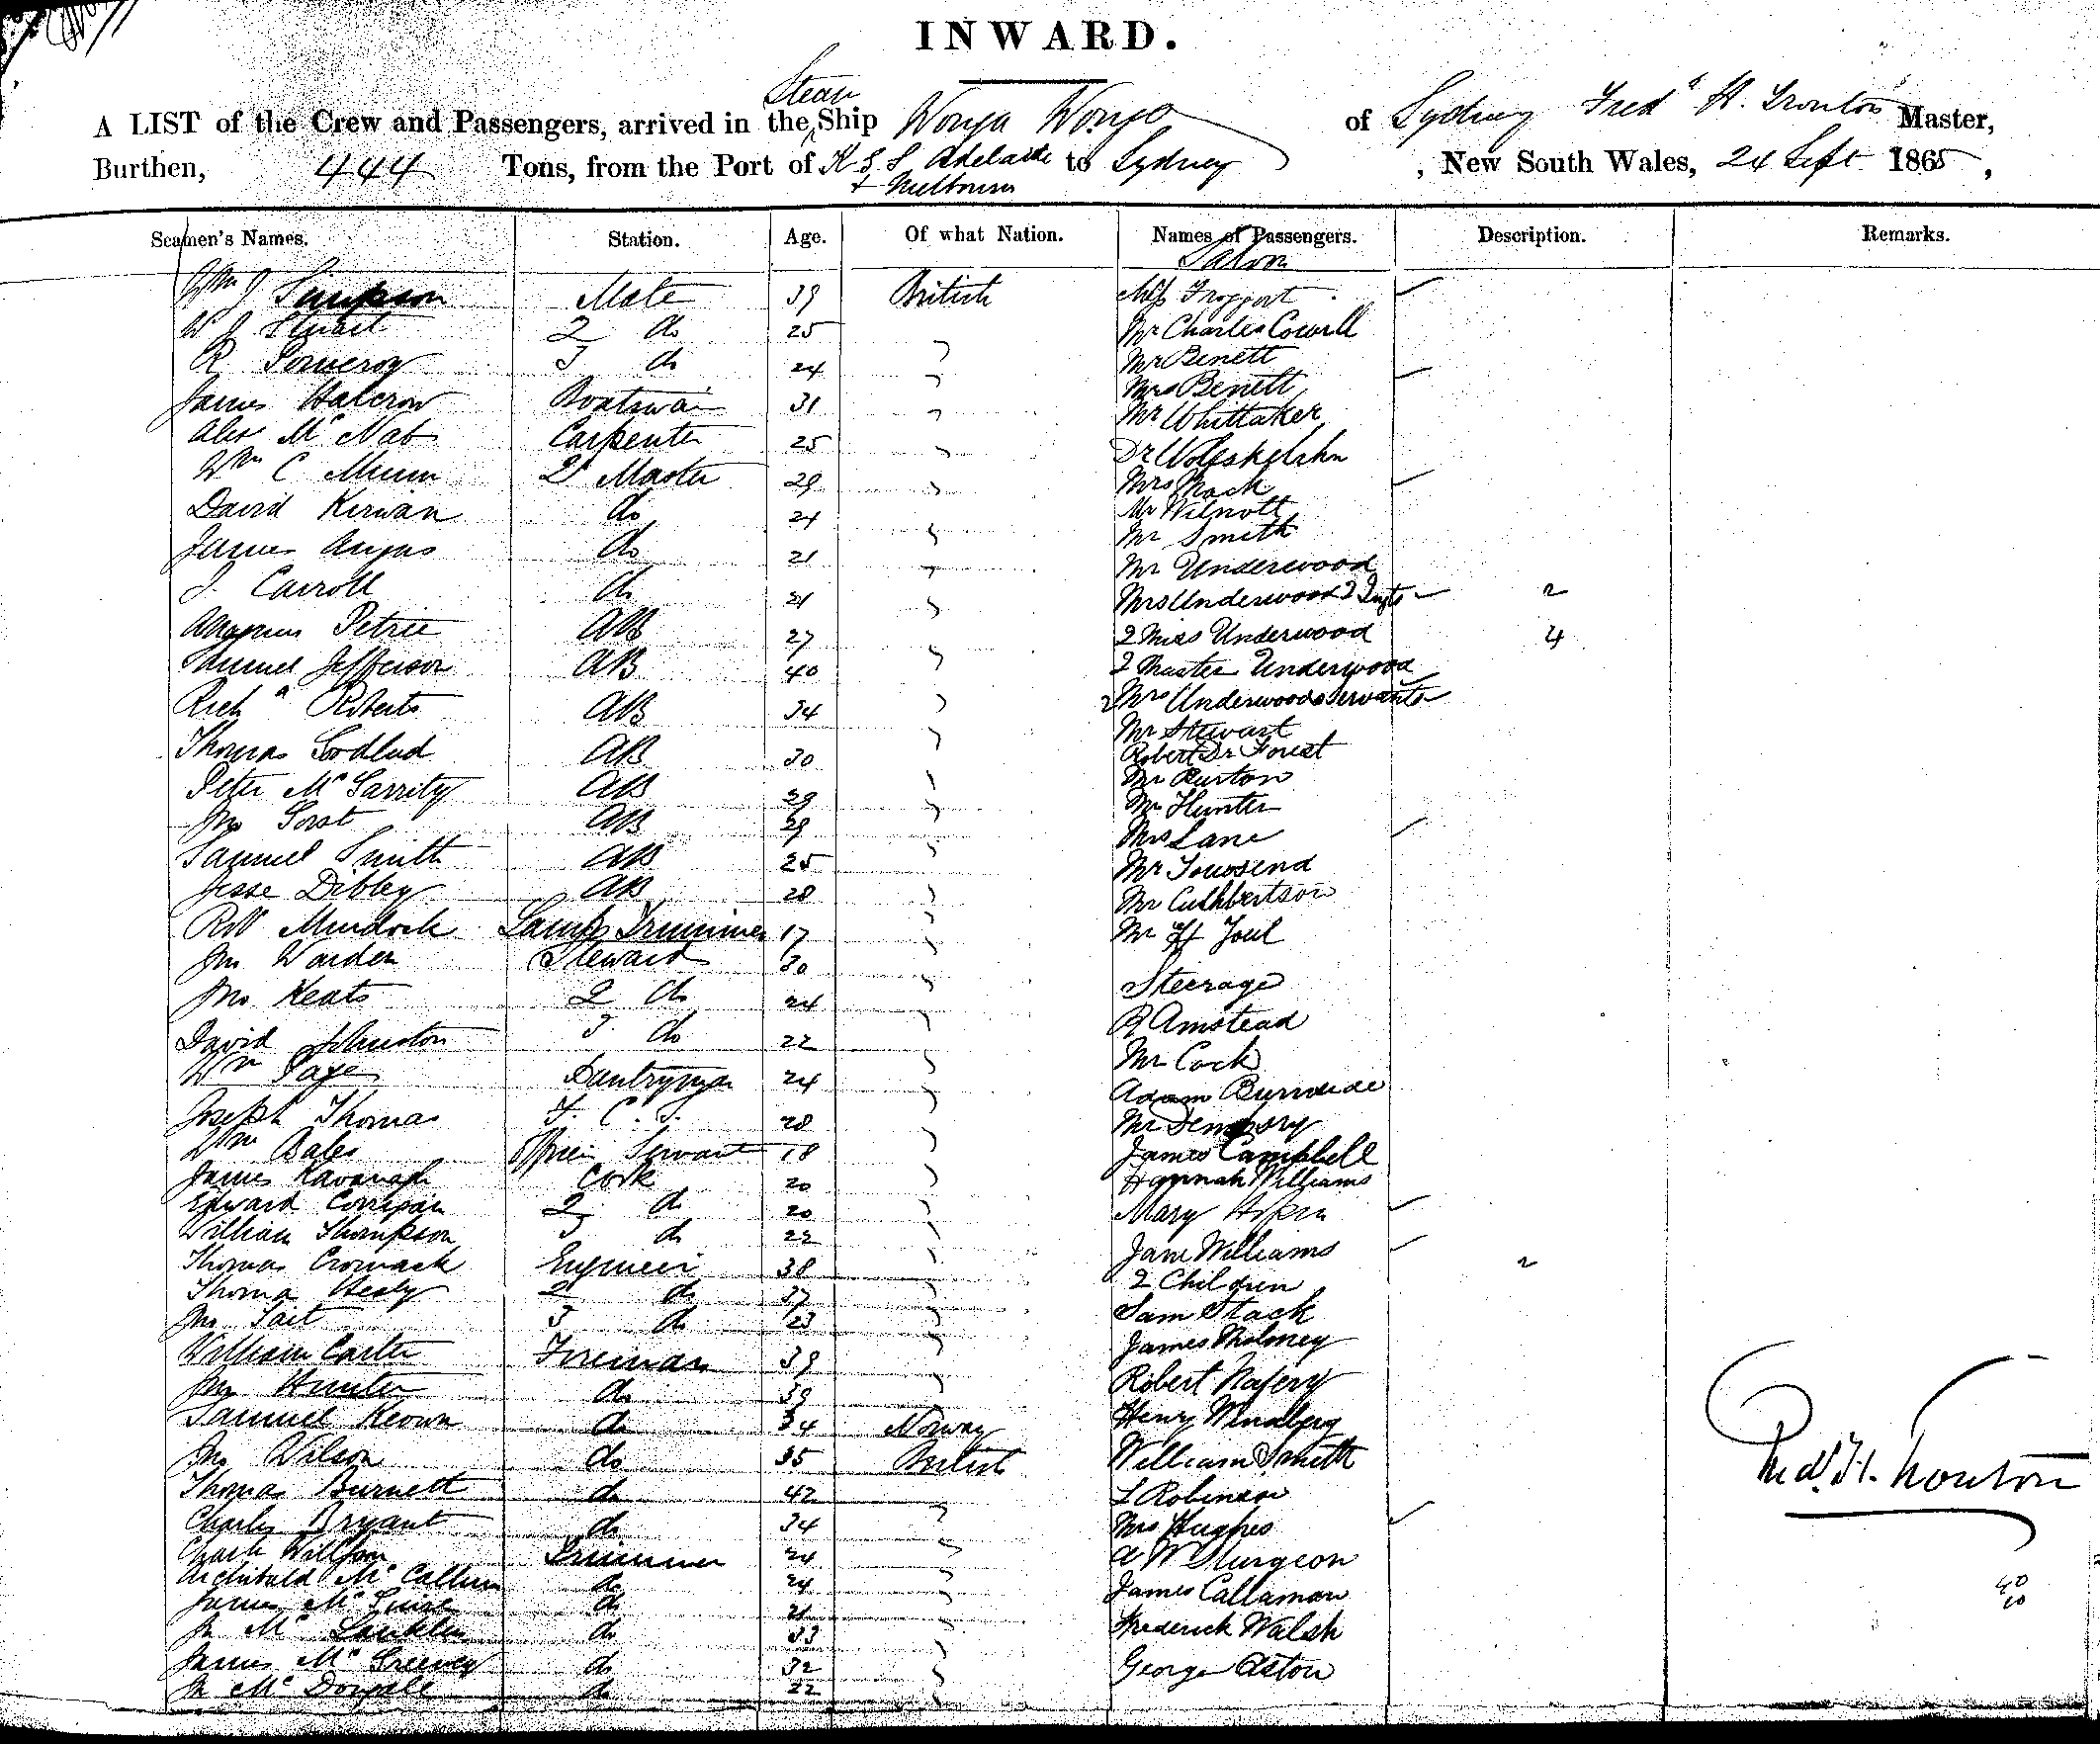 INWARD.
Steam
A LIST of the Crew and Passengers, arrived in the Ship Wonga Wonga of Sydney Fredk H. Trouton Master,
Burthen, 444 Tons, from the Port of Adelaide to Sydney, New South Wales, 24 Sept 1865,
& Melbourne
Seamen's Names. Station. Age. Of what Nation. Names of Passengers. Description. Remarks.
Saloon
Wm J Simpson Mate 39 British Miss Froggart
W J Stuart 2 do 25 Mr Charles Cowell
R Pomeroy 3 do 24 Mr Benett
Mrs Benett
James Halcrow Boatswain 31 Mr Whittaker
Alex McNab Carpenter 25 Dr
Wm C Munn Qr Master 29 Mrs Mack
David Kirwan do 24 Mr Wilmott
Mr Smith
James Angus do 21 Mr Underwood
J. Carroll do 21 Mrs Underwood 2 Infts 2
Magnus Petrie AB 27 2 Miss Underwood 4
Samuel Jefferson AB 40 2 Master Underwood
Richd Roberts AB 34 2 Mrs Underwoods Servants
Mr Stewart
Thomas AB 30 Robert De Forest
Peter McGarrity AB 29 Mr Burton
Mr Hunter
Jno Gorst AB 29 Mrs Lane
Samuel Smith AB 25 Mr Townsend
Jesse Dibley AB 28 Mr Cuthbertson
Robt Murdock Lamp Trimmer 17 Mr H Joul
Jno Warden Steward 30
Jno Keats 2 do 24 Steerage
David Johnston 3 do 22 R Amstead
Wm Page Pantryman 24 Mr Cock
Adam Burnside
Joseph Thomas F. C. S. 28 Mr Dempsry
Wm Bales Servant 18 James Campbell
James Kavanagh Cook 20 Hannah Williams
Edward Corrigan 2 do 20 Mary
William Thompson 3 do 22 Jane Williams
Thomas Cromack Engineer 38 2 Children 2
Thomas Healy 2 do 37 Sam Stack
Jno Tait 3 do 23 James Moloney
William Carter Fireman 39 Robert
Jno Hunter do 39 Henry
Samuel Keown do 34 Norway William Smith
Jno Wilson do 35 British L Robinson
Thomas Burnett do 42 Mrs Hughes
Charles Bryant do 34 A W Sturgeon
Trimmer 24 James Callaman
Archibald McCallum do 24 Frederick Walsh
James do 21 George Aston
Jn McLauklin do 33
James McGreevey do 32
Jn McDougall do 22
Fredk H. Trouton
40
10